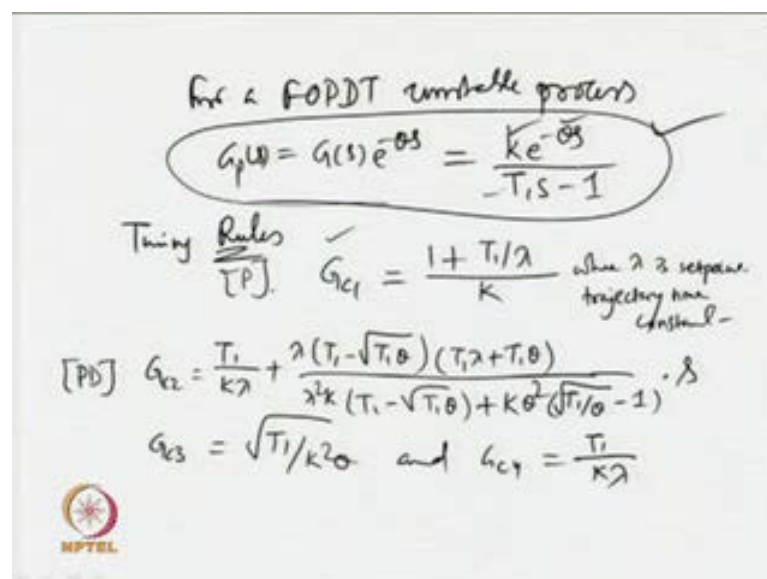 for a FOPDT unstable process
Gp(s) = G(s) e^-θs = Ke^-θs / T₁s - 1
Tuning Rules
[P] Gc1 = 1 + T₁/λ / K where λ is setpoint
trajectory time
constant -
[PD] Gc2 = T₁/Kλ + λ(T₁ - √T₁θ)(T₁λ + T₁θ) / λ²K(T₁ - √T₁θ) + Kθ²(√T₁/θ - 1) · s
Gc3 = √T₁/K²θ and Gc4 = T₁/Kλ
NPTEL